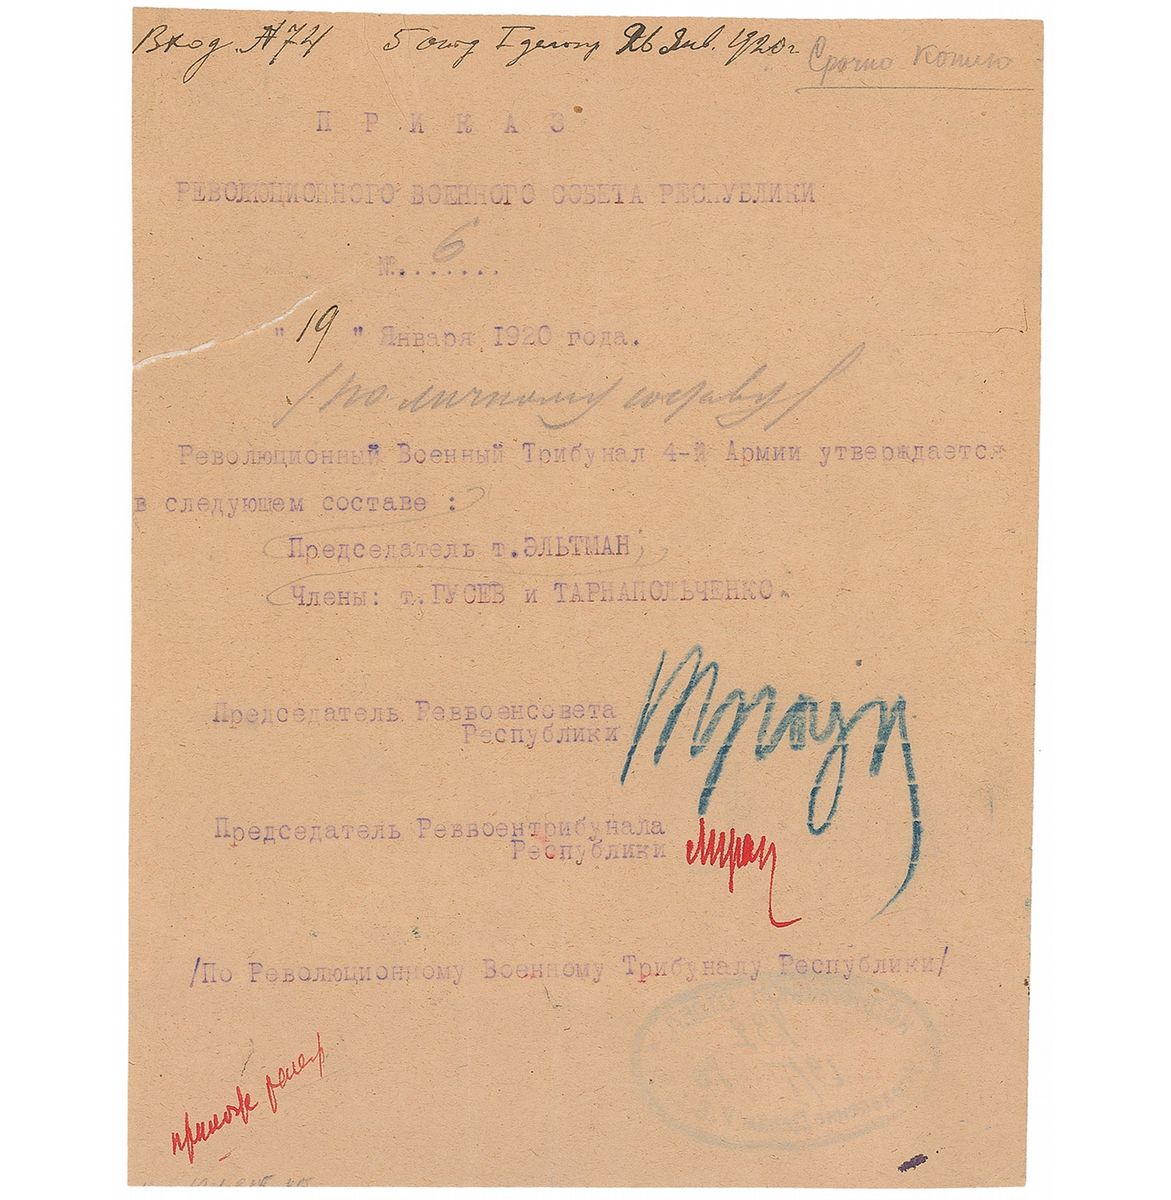 Вход. №74 5 отд I делопр 26 Янв. 1920 г
Срочно копию
ПРИКАЗ
РЕВОЛЮЦИОННОГО ВОЕННОГО СОВЕТА РЕСПУБЛИКИ
№ 6
"19" Января 1920 года.
/по личному составу/
Революционный Военный Трибунал 4-й Армии утверждается
в следующем составе :
Председатель т.ЭЛЬТМАН,
Члены: т.ГУСЕВ и ТАРНАПОЛЬЧЕНКО.
Председатель Реввоенсовета
Республики
Председатель Реввоентрибунала
Республики
/По Революционному Военному Трибуналу Республики/